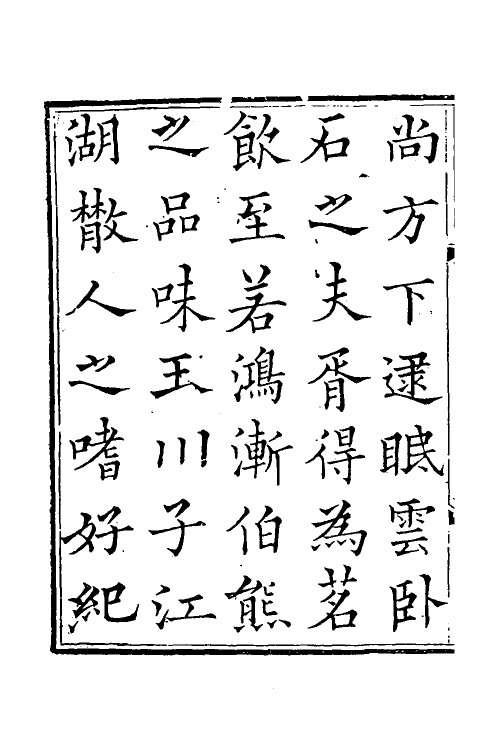 尚方下逮眠雲卧
石之夫胥得為茗
飲至若鴻漸伯熊
之品味玉川子江
湖散人之嗜好紀